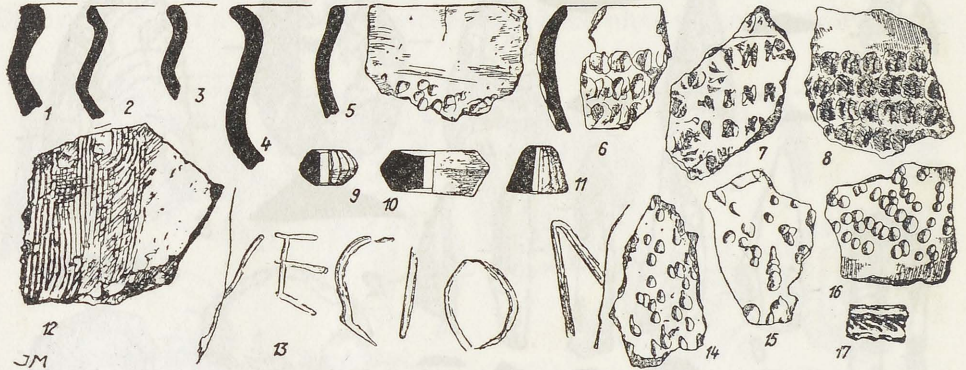 1 2 3 4 5 6 7 8
9 10 11
VECION
12 13 14 15 16 17
JM